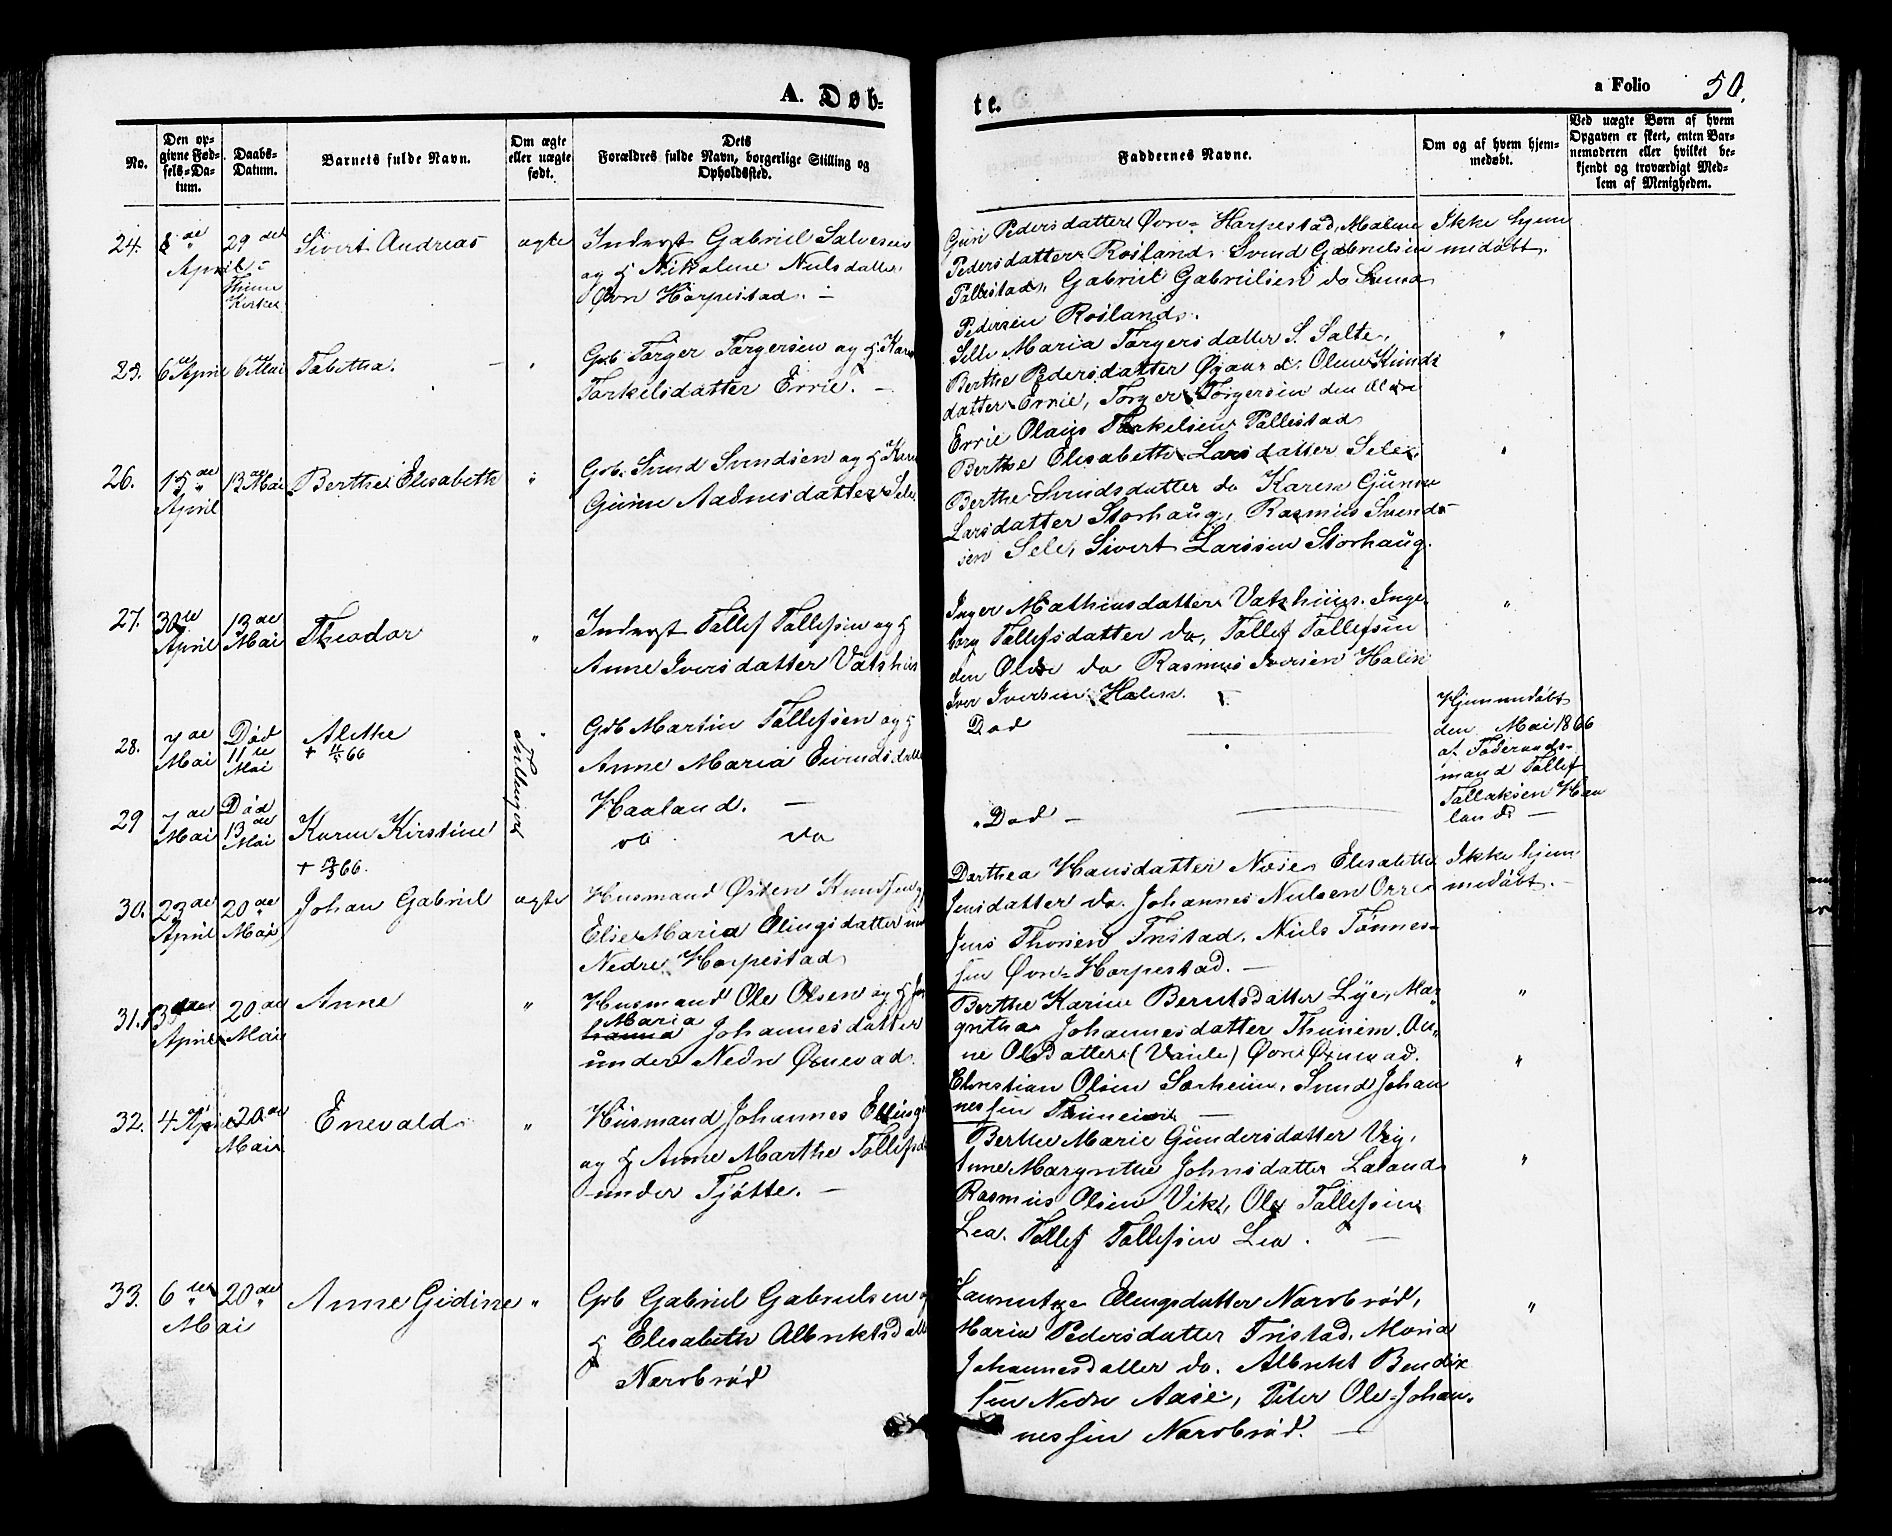 A. Døb-
te.
a Folio 50.
No.
Den op-
givne Fød-
sels-Da-
tum.
Daabs-
Datum.
Barnets fulde Navn.
Om ægte
eller uægte
født.
Dets
Forældres fulde Navn, borgerlige Stilling og
Opholdssted.
Faddernes Navne.
Om og af hvem hjem-
medøbt.
Ved uægte Børn af hvem
Opgaven er skeet, enten Bar-
nemoderen eller hvilket be-
kjendt og troværdigt Med-
lem af Menigheden.
24.
8de
April
29det
Kirke
Sivert Andreas
ægte
Inderst Gabriel Salvesen
og H Nikoline Nielsdatter
Øvre Harpestad. -
Guri Pedersdatter Øvre Harpestad, Malene
Pedersdatter Rosland. Svend Gabrielsen
Tallestad, Gabriel Gabrielsen do
Pedersen Rosland.
Ikke hjem
medøbt.
25.
6te April
6 Mai
Tabitha.
"
Grb Torger Torgersen og H Karen
Torkelsdatter Errie. -
Sille Maria Torgersdatter S. Salte,
Berthe Pedersdatter Olene Knuds
datter Errie, Torger Torgersen den Eldre
Errie Olaus Torkelsen Tallestad
"
26.
15de
April
13de Mai
Berthe Elisabeth
"
Grb. Svend Svendsen og H Karen
Gurine Aadnesdatter Sele
Berthe Elisabeth Larsdatter Sele,
Berthe Svendsdatter do Karen Gurine
Larsdatter Storhaug, Rasmus Svend-
sen Sele, Sivert Larssen Storhaug.
"
27.
30te
April
13de
Mai
Theodor
"
Inderst Tollef Tollefsen og H
Anne Iversdatter Vatshus
Inger Mathiasdatter Vatshuus. Inge-
borg Tollefsdatter do, Tollef Tollefsen
den Eldre do Rasmus Iversen Halen
Iver Iversen Halen. -
"
28.
7de
Mai
Død
11te
Mai
Alethe
+ 11/5 66
Tvillinger
Grb Martin Tollefsen og H
Anne Maria Eivindsdatter
Haaland. -
Død
Hjemmedøbt
den Mai 1866
af Føderaads-
mand Tollef
Tollaksen Haa
land -
29
7de
Mai
Død
13de
Mai
Karen Kirstine
+ 13/5 66.
do do
Død -
30.
23de
April
20de
Mai
Johan Gabriel
ægte
Husmand Østen Knudsen og
Elise Maria Elingsdatter und
Nedre Harpestad
Dorthea Hansdatter Næse Elisabeth
Jensdatter do. Johannes Nielsen Orre
Jens Thorsen Tristad. Niels Tønnes-
sen Øvre Harpestad. -
Ikke hjem
medøbt. -
31.
April
20de
Mai
Anne
"
Husmand Ole Olsen og H Jo
hanna Maria Johannesdatter
under Nedre Øxnevad.
Berthe Karine Berntsdatter Lye, Mar-
gretha Johannesdatter Thunem. An-
ne Olsdatter (Varde) Øvre Øxnevad.
Christian Olsen Sørheim, Svend Johan
nessen Thuneim -
"
"
32.
4 April
20de
Mai
Enevald
"
Husmand Johannes Ellings
og H Anne Marthe Tollefsd
under Tjøtte. -
Berthe Marie Gundersdatter Vig,
Anne Margrethe Johnsdatter Laland
Rasmus Olsen Vik, Ole Tollefsen
Lea. Tollef Tollefsen Lea. -
"
33.
6te
Mai
20de
"
Anne Gidine
"
Grb Gabriel Gabrielsen og
H Elisabeth Albrektsdatt
Nærbrød
Laurentze Elingsdatter Nærbrød,
Maria Pedersdatter Tristad. Maria
Johannesdatter do. Albrekt Bendix
sen Nedre Aase, Peter Ole Johan-
nessen Nærbrød. -
"